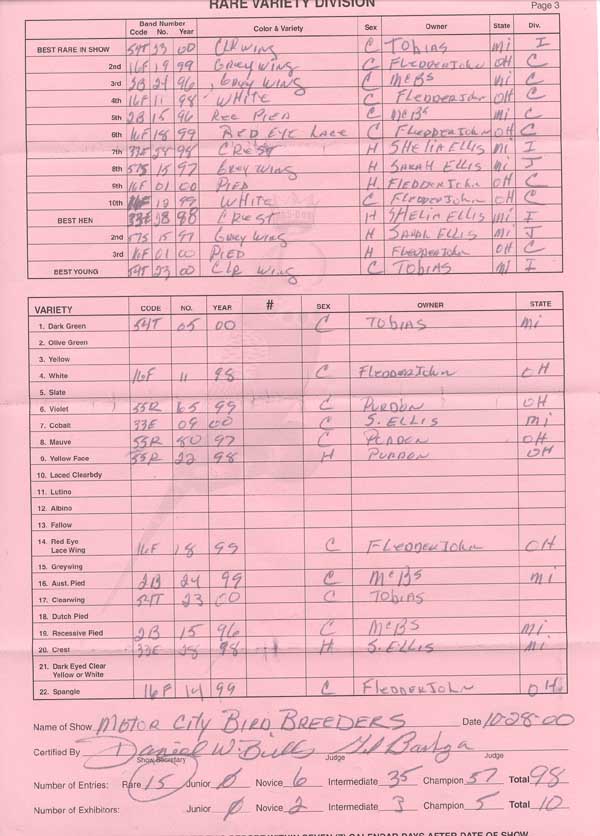 RARE VARIETY DIVISION Page 3
Band Number
Code No. Year Color & Variety Sex Owner State Div.
BEST RARE IN SHOW 54T 23 00 CLRWING C TOBIAS Mi I
2nd 16F 19 99 GREYWING C FLEDDERJOHN OH C
3rd 2B 24 96 GREY WING C McBS Mi C
4th 16F 11 98 WHITE C FLEDDERJOHN OH C
5th 2B 15 96 REC PIED C McBS Mi C
6th 16F 18 99 RED EYE LACE C FLEDDERJOHN OH C
7th 33E 28 98 CREST H SHELIA ELLIS Mi I
8th 57S 15 97 GREY WING H SARAH ELLIS Mi J
9th 16F 01 00 PIED H FLEDDERJOHN OH C
10th 16F 12 99 WHITE C FLEDDERJOHN OH C
BEST HEN 33E 28 98 CREST H SHELIA ELLIS Mi I
2nd 57S 15 97 GREY WING H SARAH ELLIS Mi J
3rd 16F 01 00 PIED H FLEDDERJOHN OH C
BEST YOUNG 54T 23 00 CLR WING C TOBIAS Mi I
VARIETY CODE NO. YEAR # SEX OWNER STATE
1. Dark Green 54T 05 00 C TOBIAS Mi
2. Olive Green
3. Yellow
4. White 16F 11 98 C FLEDDERJOHN OH
5. Slate
6. Violet 55R 65 99 C PURDON OH
7. Cobalt 33E 09 00 C S. ELLIS Mi
8. Mauve 55R 80 97 C PURDON OH
9. Yellow Face 55R 22 98 H PURDON OH
10. Laced Clearbdy
11. Lutino
12. Albino
13. Fallow
14. Red Eye
Lace Wing 16F 18 99 C FLEDDERJOHN OH
15. Greywing
16. Aust. Pied 2B 24 99 C McBS Mi
17. Clearwing 54T 23 00 C TOBIAS
18. Dutch Pied
19. Recessive Pied 2B 15 96 C McBS Mi
20. Crest 33E 28 98 H S. ELLIS Mi
21. Dark Eyed Clear
Yellow or White
22. Spangle 16F 14 99 C FLEDDERJOHN OH
Name of Show MOTOR CITY BIRD BREEDERS Date 10-28-00
Certified By Daniel W.
Show Secretary Judge Judge
Number of Entries: Rare 15 Junior 0 Novice 6 Intermediate 35 Champion 57 Total 98
Number of Exhibitors: Junior 0 Novice 2 Intermediate 3 Champion 5 Total 10